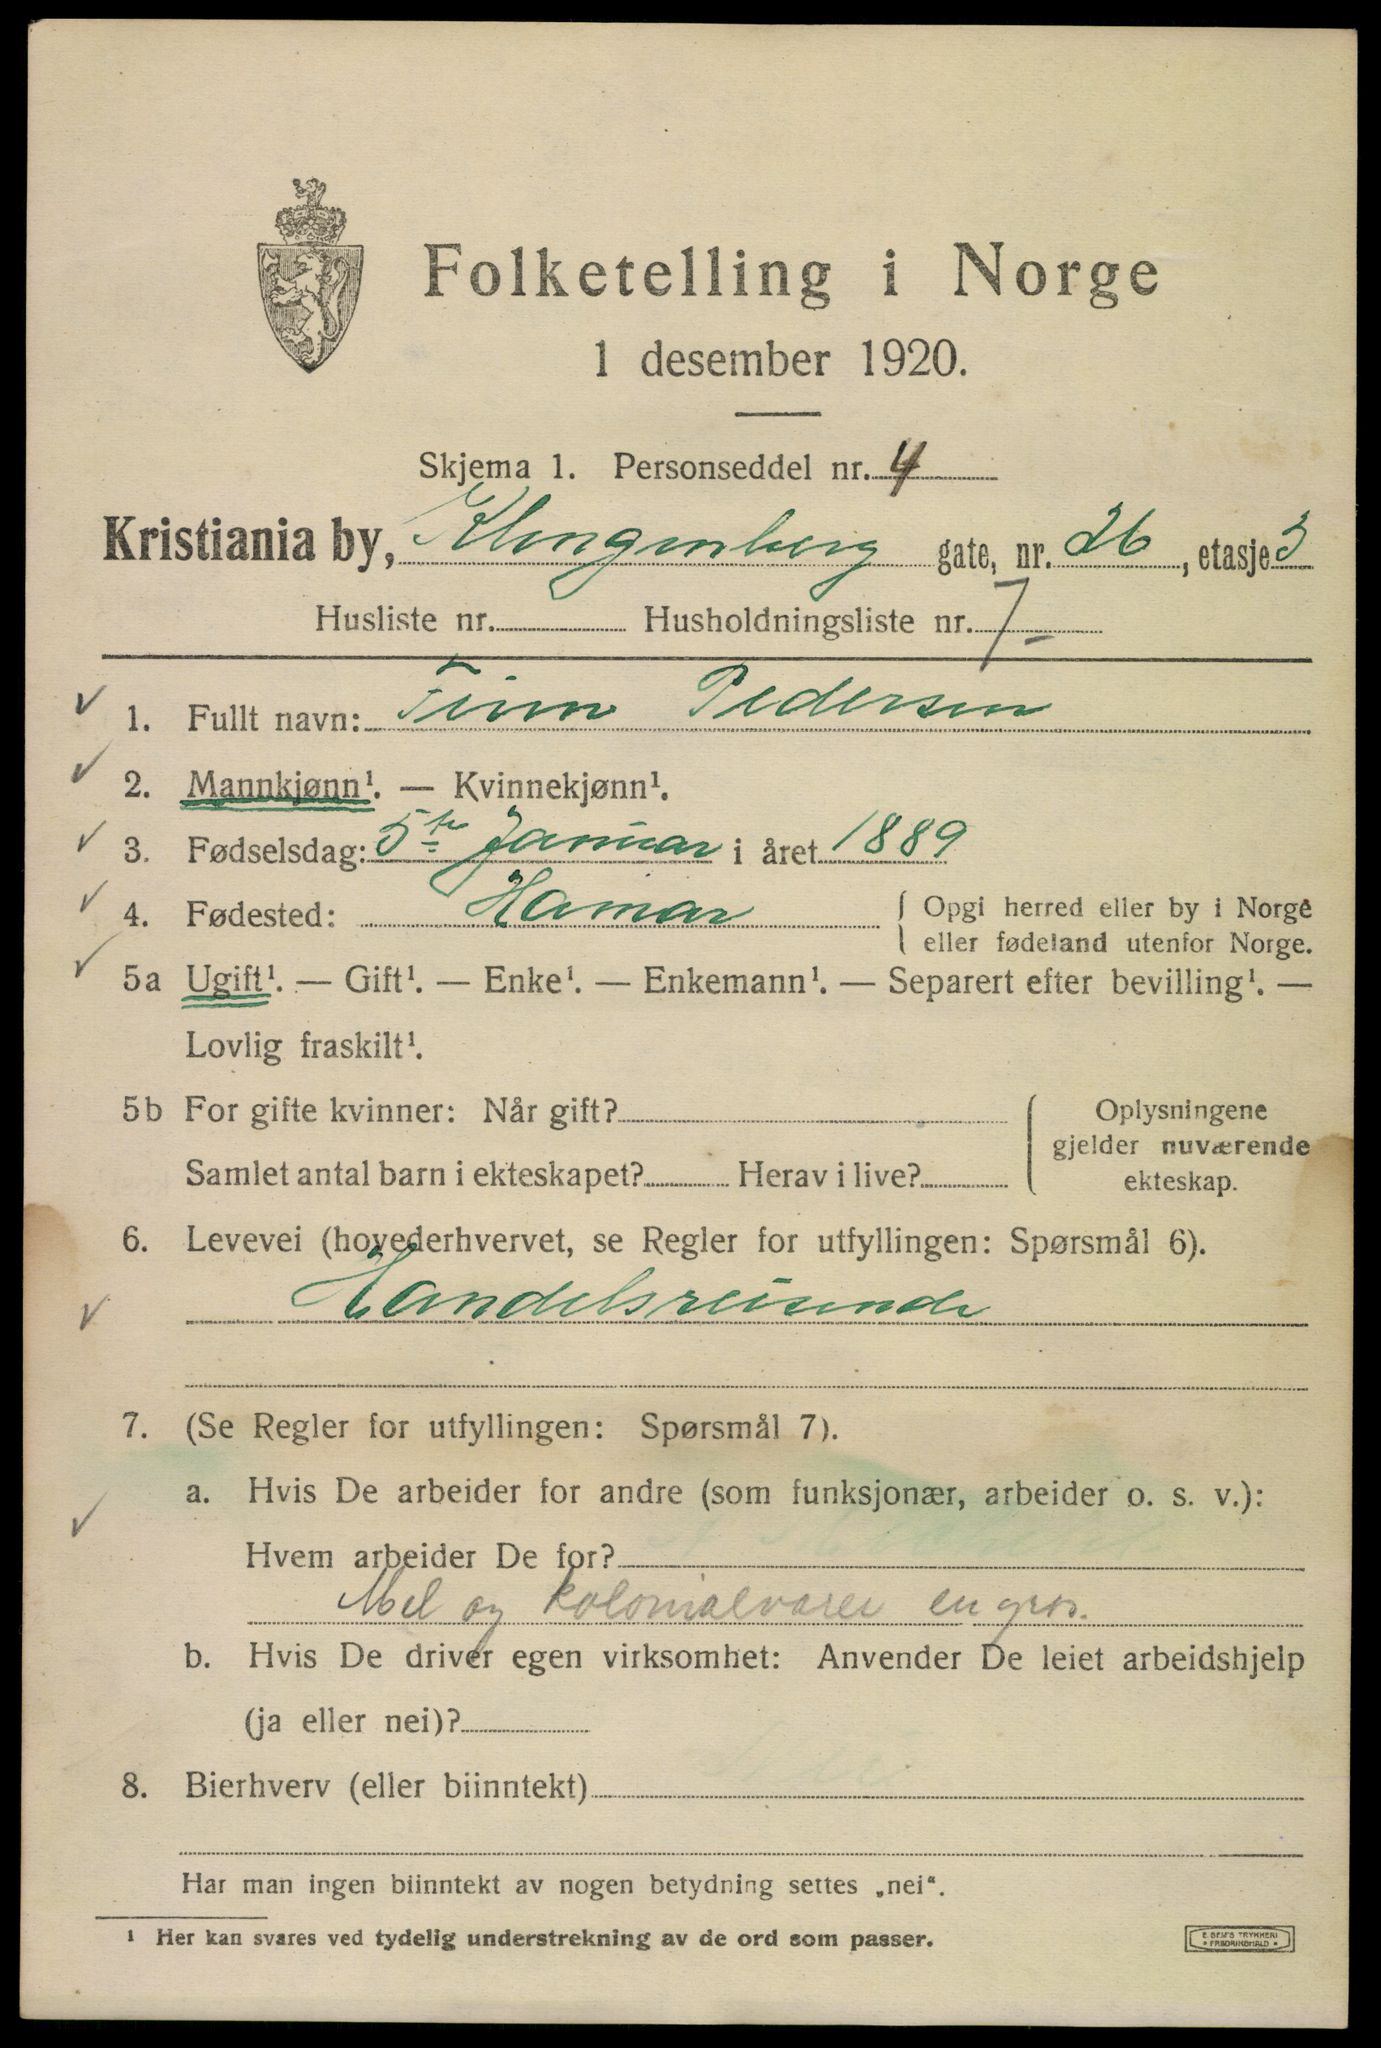 Folketelling i Norge
1 desember 1920.
Skjema 1. Personseddel nr. 4
Kristiania by, Klingenberg gate, nr. 26, etasje 3
Husliste nr. Husholdningsliste nr. 7
1. Fullt navn: Finn Pedersen
2. Mannkjønn¹. — Kvinnekjønn¹.
3. Fødselsdag: 5te Januar i året 1889
4. Fødested: Hamar { Opgi herred eller by i Norge
eller fødeland utenfor Norge.
5a Ugift¹. — Gift¹. — Enke¹. — Enkemann¹. — Separert efter bevilling¹. —
Lovlig fraskilt¹.
5b For gifte kvinner: Når gift? { Oplysningene
gjelder nuværende
Samlet antal barn i ekteskapet? Herav i live?
ekteskap.
6. Levevei (hovederhvervet, se Regler for utfyllingen: Spørsmål 6).
Handelsreisende
7. (Se Regler for utfyllingen: Spørsmål 7).
a. Hvis De arbeider for andre (som funksjonær, arbeider o. s. v.):
Hvem arbeider De for?
Mel og kolonialvarer en gros.
b. Hvis De driver egen virksomhet: Anvender De leiet arbeidshjelp
(ja eller nei)?
8. Bierhverv (eller biinntekt)
Har man ingen biinntekt av nogen betydning settes „nei“.
¹ Her kan svares ved tydelig understrekning av de ord som passer.
E. SEM'S TRYKKERI
FREDRIKSHALD